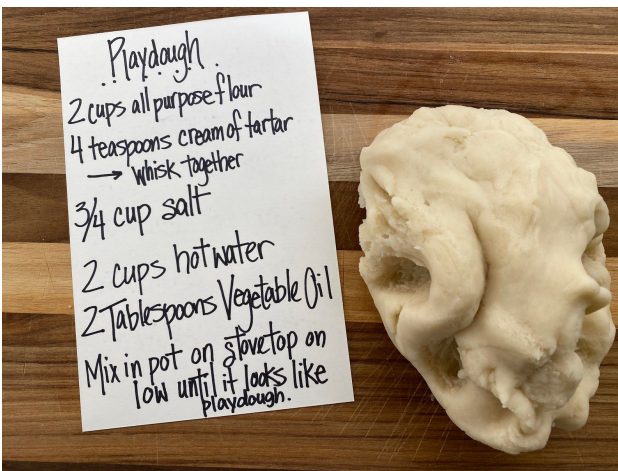 Playdough
2 cups all purpose flour
4 teaspoons cream of tartar
→ whisk together
3/4 cup salt
2 cups hot water
2 Tablespoons Vegetable Oil
Mix in pot on stovetop on
low until it looks like
playdough.